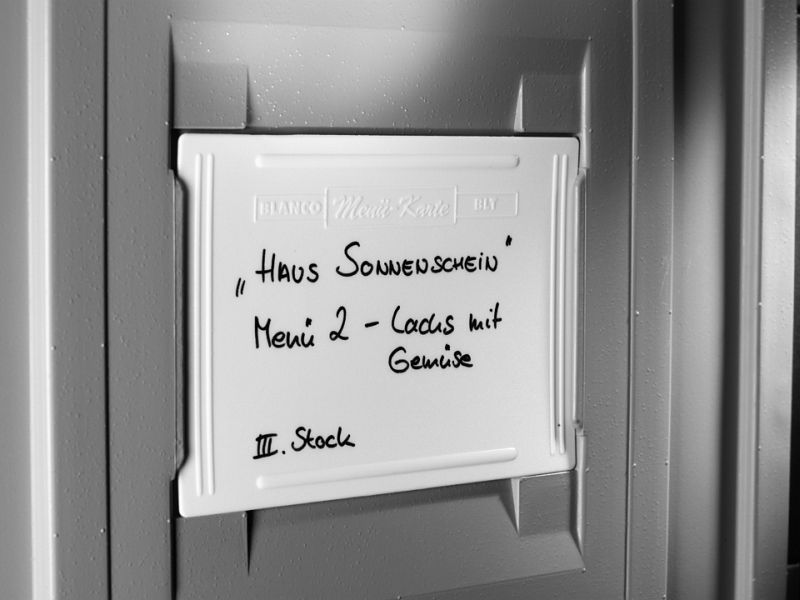 BLANCO Menü-Karte BLT
„Haus Sonnenschein"
Menü 2 - Lachs mit
Gemüse
III. Stock